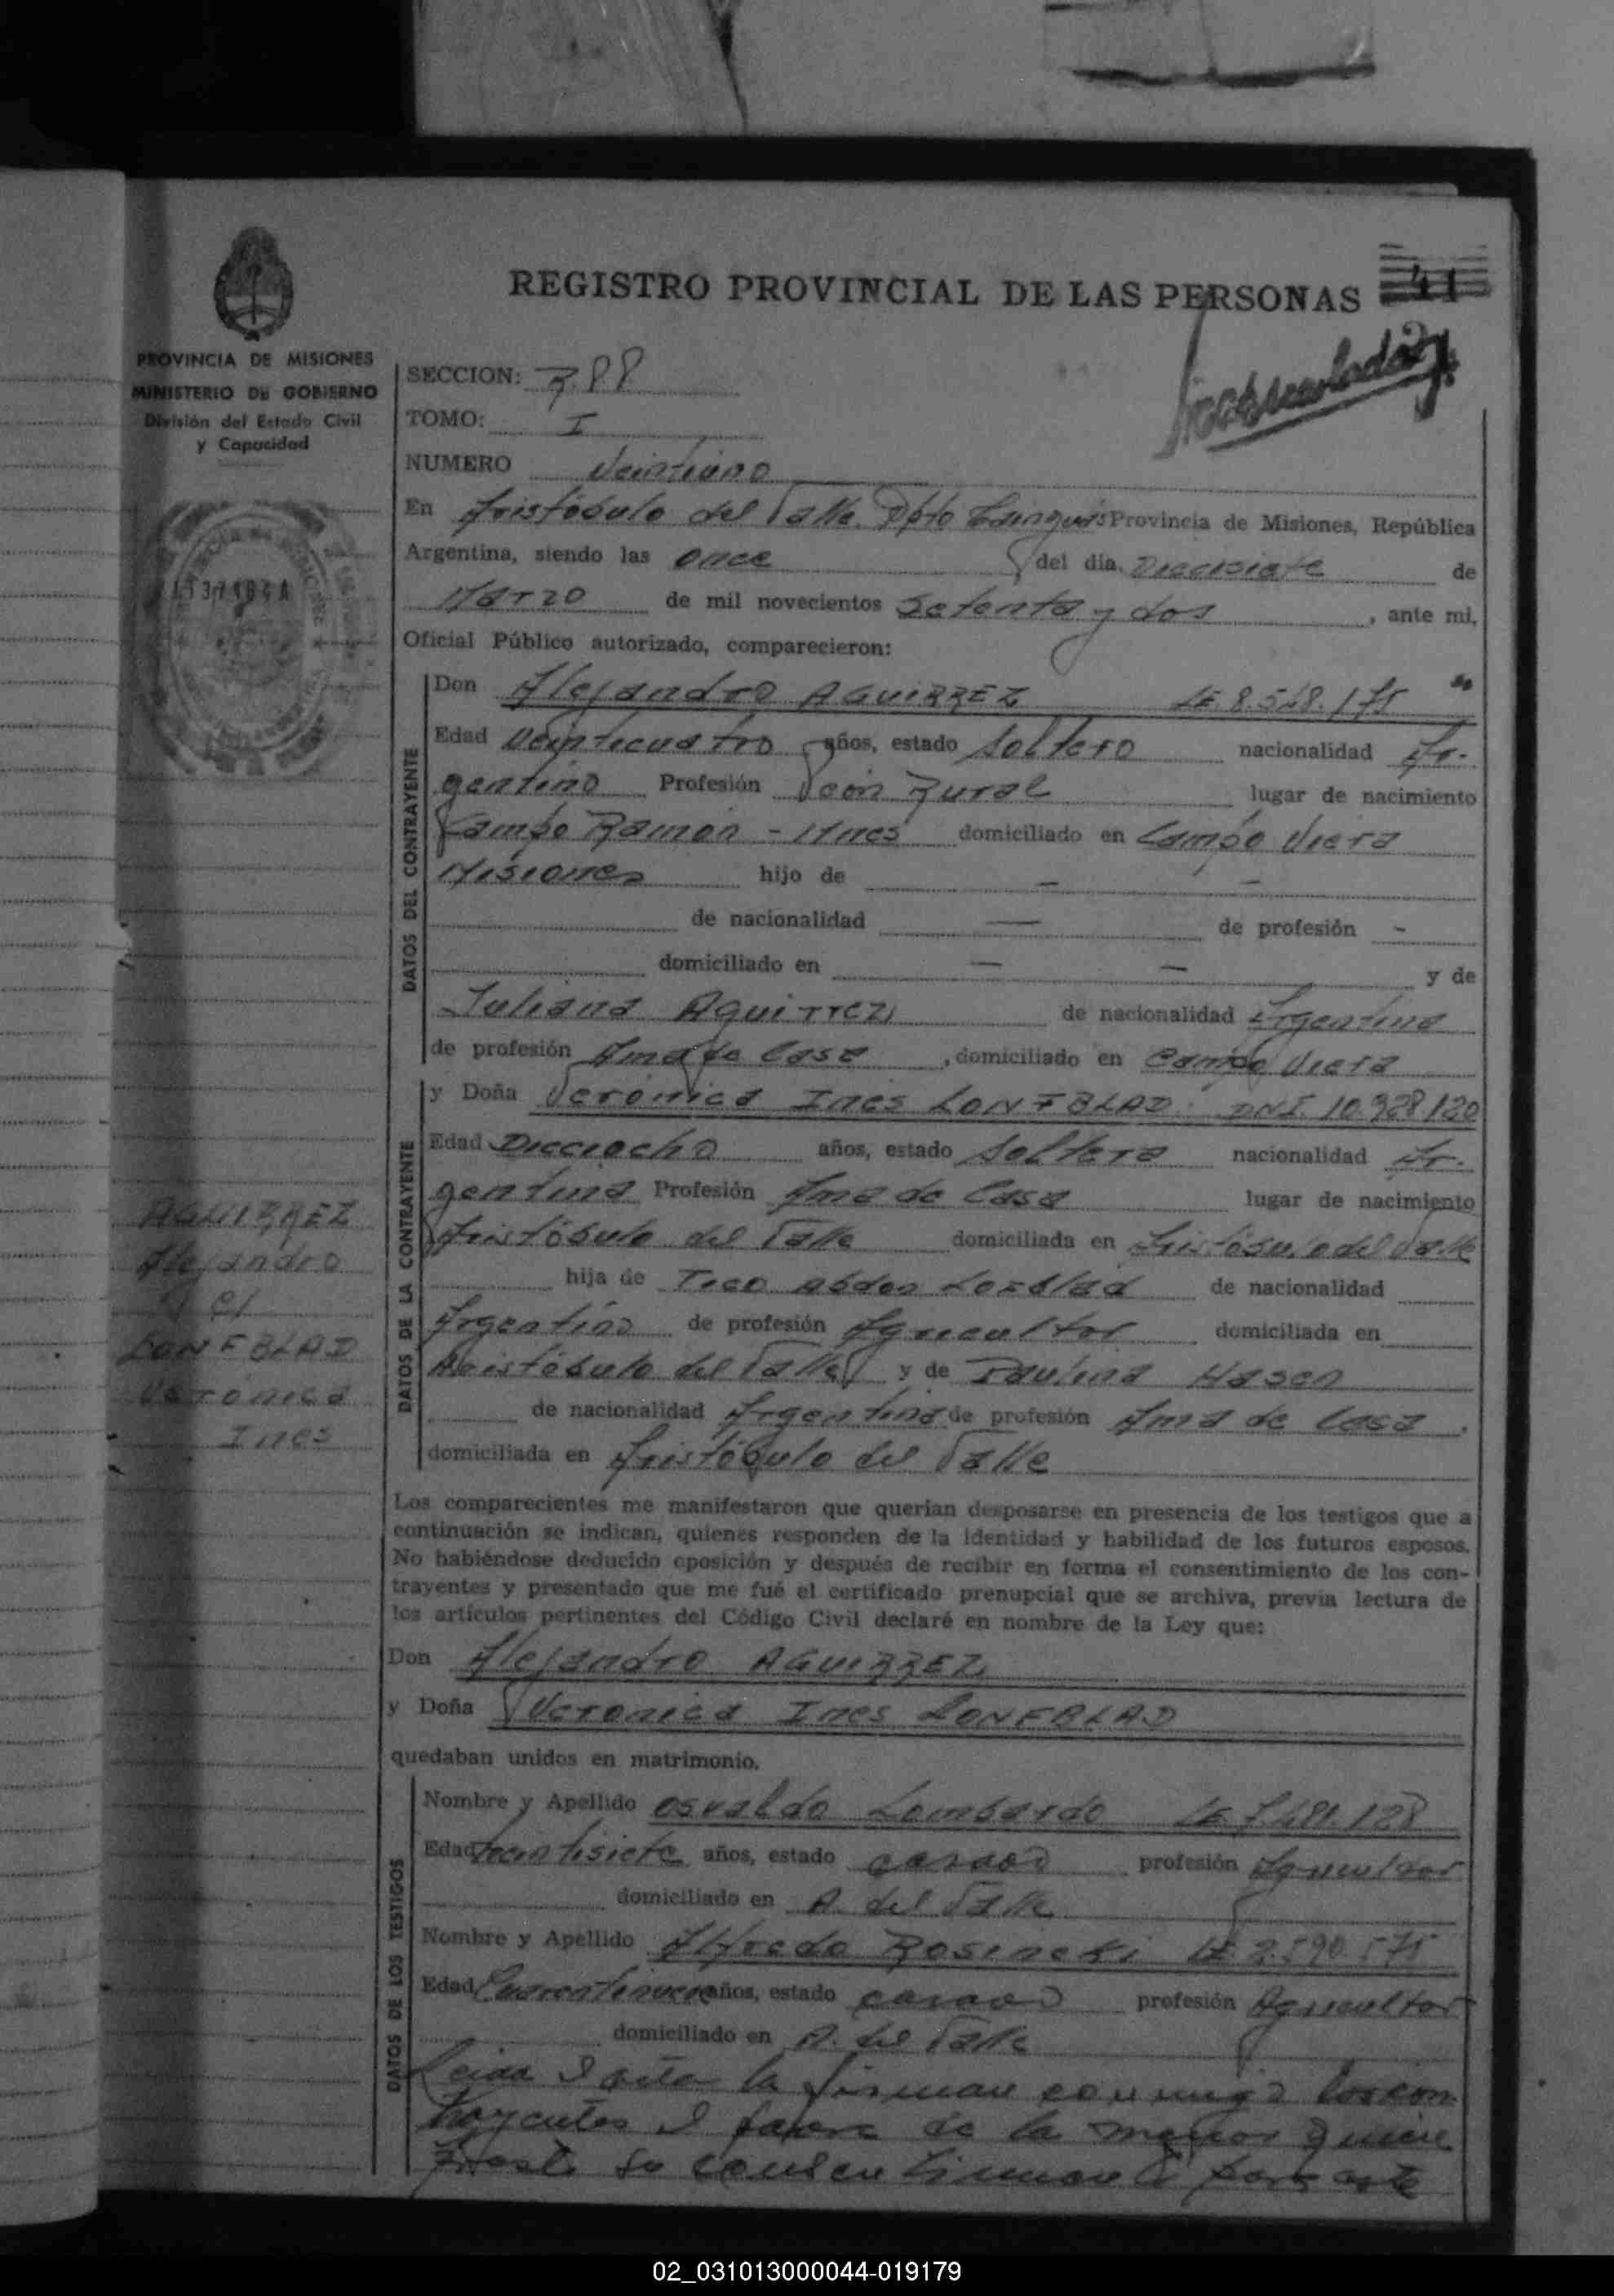 41
REGISTRO PROVINCIAL DE LAS PERSONAS
PROVINCIA DE MISIONES
MINISTERIO DE GOBIERNO
División del Estado Civil
y Capacidad
SECCION:
TOMO: I
NUMERO Veintiuno
En Aristóbulo del Valle Dpto Cainguás Provincia de Misiones, República
Argentina, siendo las once del día Diecisiete de
Marzo de mil novecientos Setenta y dos, ante mi,
Oficial Público autorizado, comparecieron:
DATOS DEL CONTRAYENTE
Don Alejandro AGUIRREZ LE. 8.548.175
Edad Veinticuatro años, estado Soltero nacionalidad Ar-
gentino Profesión Peón Rural lugar de nacimiento
Campo Ramón - Mnes domiciliado en Campo Viera
Misiones hijo de — —
de nacionalidad — de profesión -
domiciliado en — — y de
Juliana Aguirrez de nacionalidad Argentina
de profesión Ama de Casa, domiciliado en Campo Viera
DATOS DE LA CONTRAYENTE
y Doña Verónica Ines LONFBLAD DNI. 10.928.120
Edad Dieciocho años, estado Soltera nacionalidad Ar-
gentina Profesión Ama de Casa lugar de nacimiento
Aristóbulo del Valle domiciliada en Aristóbulo del Valle
hija de Abdon de nacionalidad
Argentino de profesión Agricultor domiciliada en
Aristóbulo del Valle y de Paulina Hasen
de nacionalidad Argentina de profesión Ama de Casa.
domiciliada en Aristóbulo del Valle
AGUIRREZ
Alejandro
c/
LONFBLAD
Verónica
Ines
Los comparecientes me manifestaron que querían desposarse en presencia de los testigos que a
continuación se indican, quienes responden de la identidad y habilidad de los futuros esposos.
No habiéndose deducido oposición y después de recibir en forma el consentimiento de los con-
trayentes y presentado que me fué el certificado prenupcial que se archiva, previa lectura de
los artículos pertinentes del Código Civil declaré en nombre de la Ley que:
Don Alejandro AGUIRREZ
y Doña Veronica Ines LONFBLAD
quedaban unidos en matrimonio.
DATOS DE LOS TESTIGOS
Nombre y Apellido Osvaldo Lombardo LE. 7.481.128
Edad años, estado casado profesión Agricultor
domiciliado en A. del Valle
Nombre y Apellido Alfredo Rosineki LE 2.590.575
Edad años, estado casado profesión Agricultor
domiciliado en A. del Valle
Leida el acta la firman conmigo los con-
trayentes el padre de la menor quien
presta su consentimiento para este
02_031013000044-019179